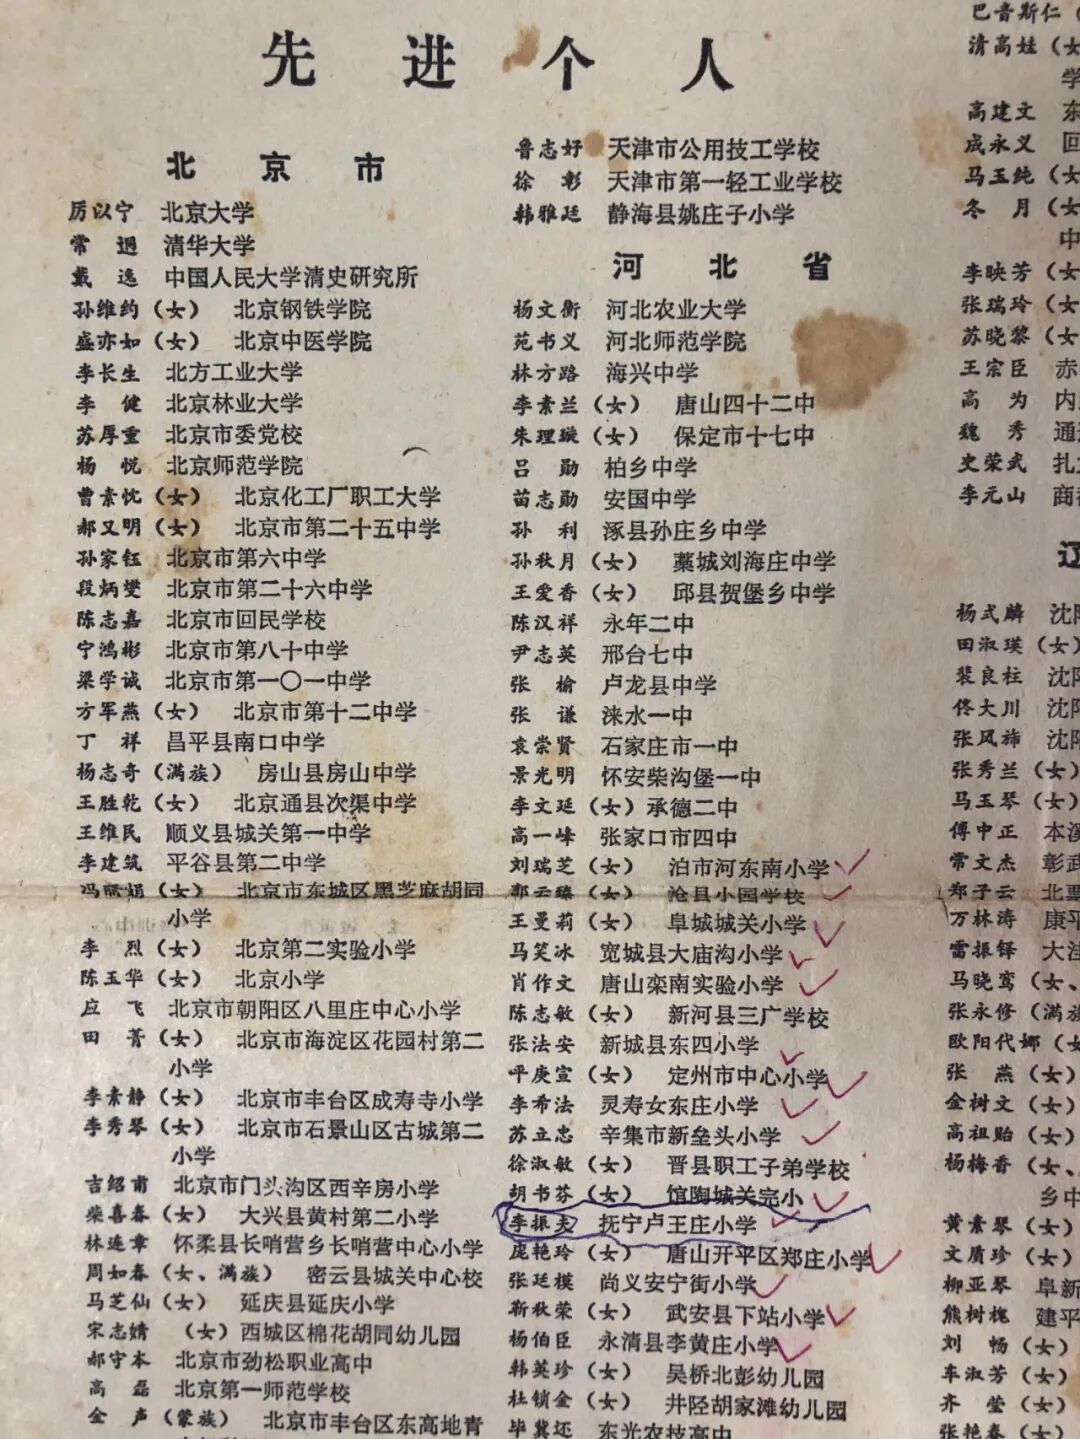 先进个人
北京市
厉以宁 北京大学
常迵 清华大学
戴逸 中国人民大学清史研究所
孙维约（女） 北京钢铁学院
盛亦如（女） 北京中医学院
李长生 北方工业大学
李健 北京林业大学
苏厚重 北京市委党校
杨悦 北京师范学院
曹素忱（女） 北京化工厂职工大学
郝又明（女） 北京市第二十五中学
孙家钰 北京市第六中学
段炳燮 北京市第二十六中学
陈志嘉 北京市回民学校
宁鸿彬 北京市第八十中学
梁学诚 北京市第一〇一中学
方军燕（女） 北京市第十二中学
丁祥 昌平县南口中学
杨志奇（满族） 房山县房山中学
王胜乾（女） 北京通县次渠中学
王维民 顺义县城关第一中学
李建筑 平谷县第二中学
冯丽娟（女） 北京市东城区黑芝麻胡同
小学
李烈（女） 北京第二实验小学
陈玉华（女） 北京小学
应飞 北京市朝阳区八里庄中心小学
田菁（女） 北京市海淀区花园村第二
小学
李素静（女） 北京市丰台区成寿寺小学
李秀琴（女） 北京市石景山区古城第二
小学
吉绍甫 北京市门头沟区西辛房小学
柴喜春（女） 大兴县黄村第二小学
林连章 怀柔县长哨营乡长哨营中心小学
周如春（女、满族） 密云县城关中心校
马芝仙（女） 延庆县延庆小学
宋志婧 （女）西城区棉花胡同幼儿园
郝守本 北京市劲松职业高中
高磊 北京第一师范学校
金声（蒙族） 北京市丰台区东高地青
鲁志好 天津市公用技工学校
徐彰 天津市第一轻工业学校
韩雅廷 静海县姚庄子小学
河北省
杨文衡 河北农业大学
苑书义 河北师范学院
林方路 海兴中学
李素兰（女） 唐山四十二中
朱理璇（女） 保定市十七中
吕勋 柏乡中学
苗志勋 安国中学
孙利 涿县孙庄乡中学
孙秋月（女） 藁城刘海庄中学
王爱香（女） 邱县贺堡乡中学
陈汉祥 永年二中
尹志英 邢台七中
张榆 卢龙县中学
张谦 涞水一中
袁崇贤 石家庄市一中
景光明 怀安柴沟堡一中
李文廷（女）承德二中
高一峰 张家口市四中
刘瑞芝（女） 泊市河东南小学
云臻（女） 沧县小园学校
王曼莉（女） 阜城城关小学
马笑冰 宽城县大庙沟小学
肖作文 唐山栾南实验小学
陈志敏（女） 新河县三广学校
张法安 新城县东四小学
平庚宣（女） 定州市中心小学
李希法 灵寿女东庄小学
苏立忠 辛集市新垒头小学
徐淑敏（女） 晋县职工子弟学校
胡书芬（女） 馆陶城关完小
李振夫 抚宁卢王庄小学
庞艳玲（女） 唐山开平区郑庄小学
张廷模 尚义安宁街小学
靳秋荣（女） 武安县下站小学
杨伯臣 永清县李黄庄小学
韩英珍（女） 吴桥北彭幼儿园
杜锁金（女） 井陉胡家滩幼儿园
毕冀还 东光农技高中
巴音斯仁
清高娃（女
学
高建文 东
成永义 回
马玉纯（女
冬月（女
中
李映芳（女
张瑞玲（女
苏晓黎（女
王宗臣 赤
高为 内
魏秀 通
史荣武 扎
李元山 商
辽
杨式麟 沈
田淑瑛（女）
裴良柱 沈
佟大川 沈
张风旆 沈
张秀兰（女）
马玉琴（女）
傅中正 本溪
常文杰 彰武
郑子云 北票
万林涛 康平
雷振铎 大洼
马晓鸾（女、
张永修（满族
欧阳代娜（女
张燕（女）
金树文（女）
高祖贻（女）
杨梅香（女、
乡中
黄素琴（女）
文质珍（女）
柳亚琴 阜新
熊树槐 建平
刘畅（女）
车淑芳（女）
齐莹（女）
张艳春（女）